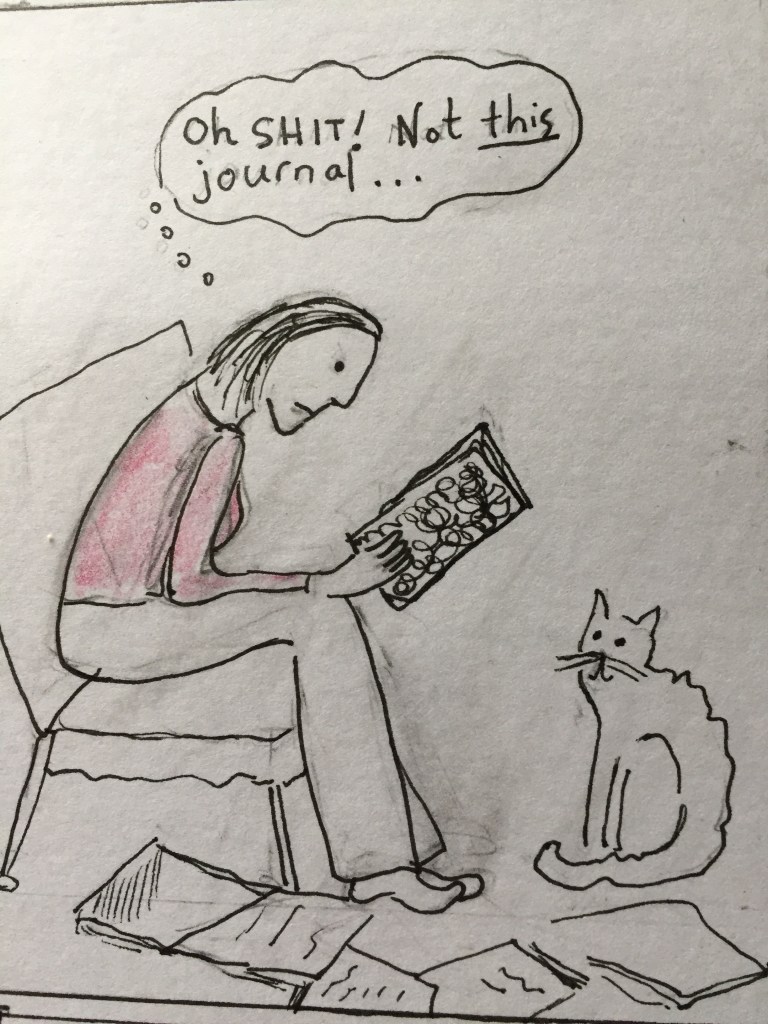 Oh SHIT! Not this
journal...